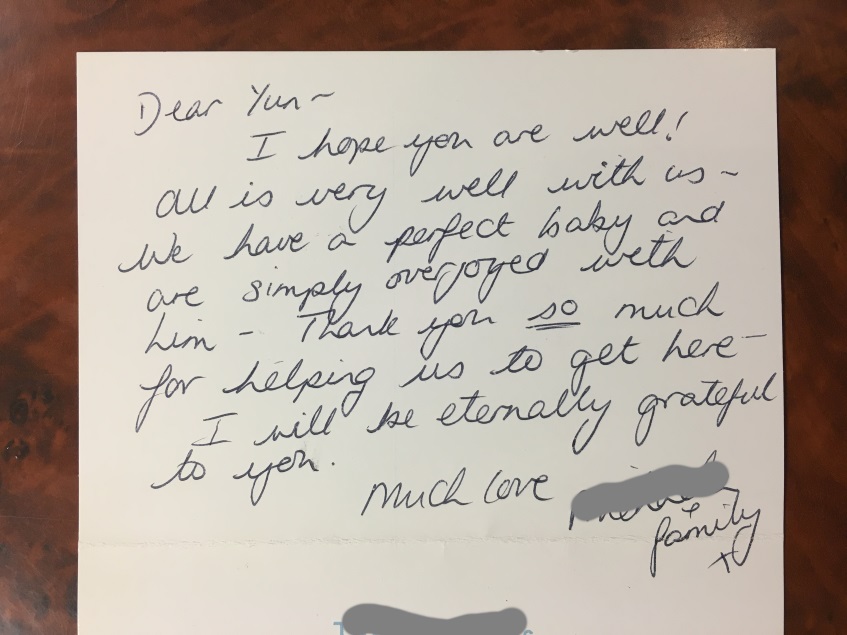 Dear Yun~
I hope you are well!
All is very well with us~
We have a perfect baby and
are simply overjoyed with
him - Thank you so much
for helping us to get here-
I will be eternally grateful
to you.
Much love
+
family
x